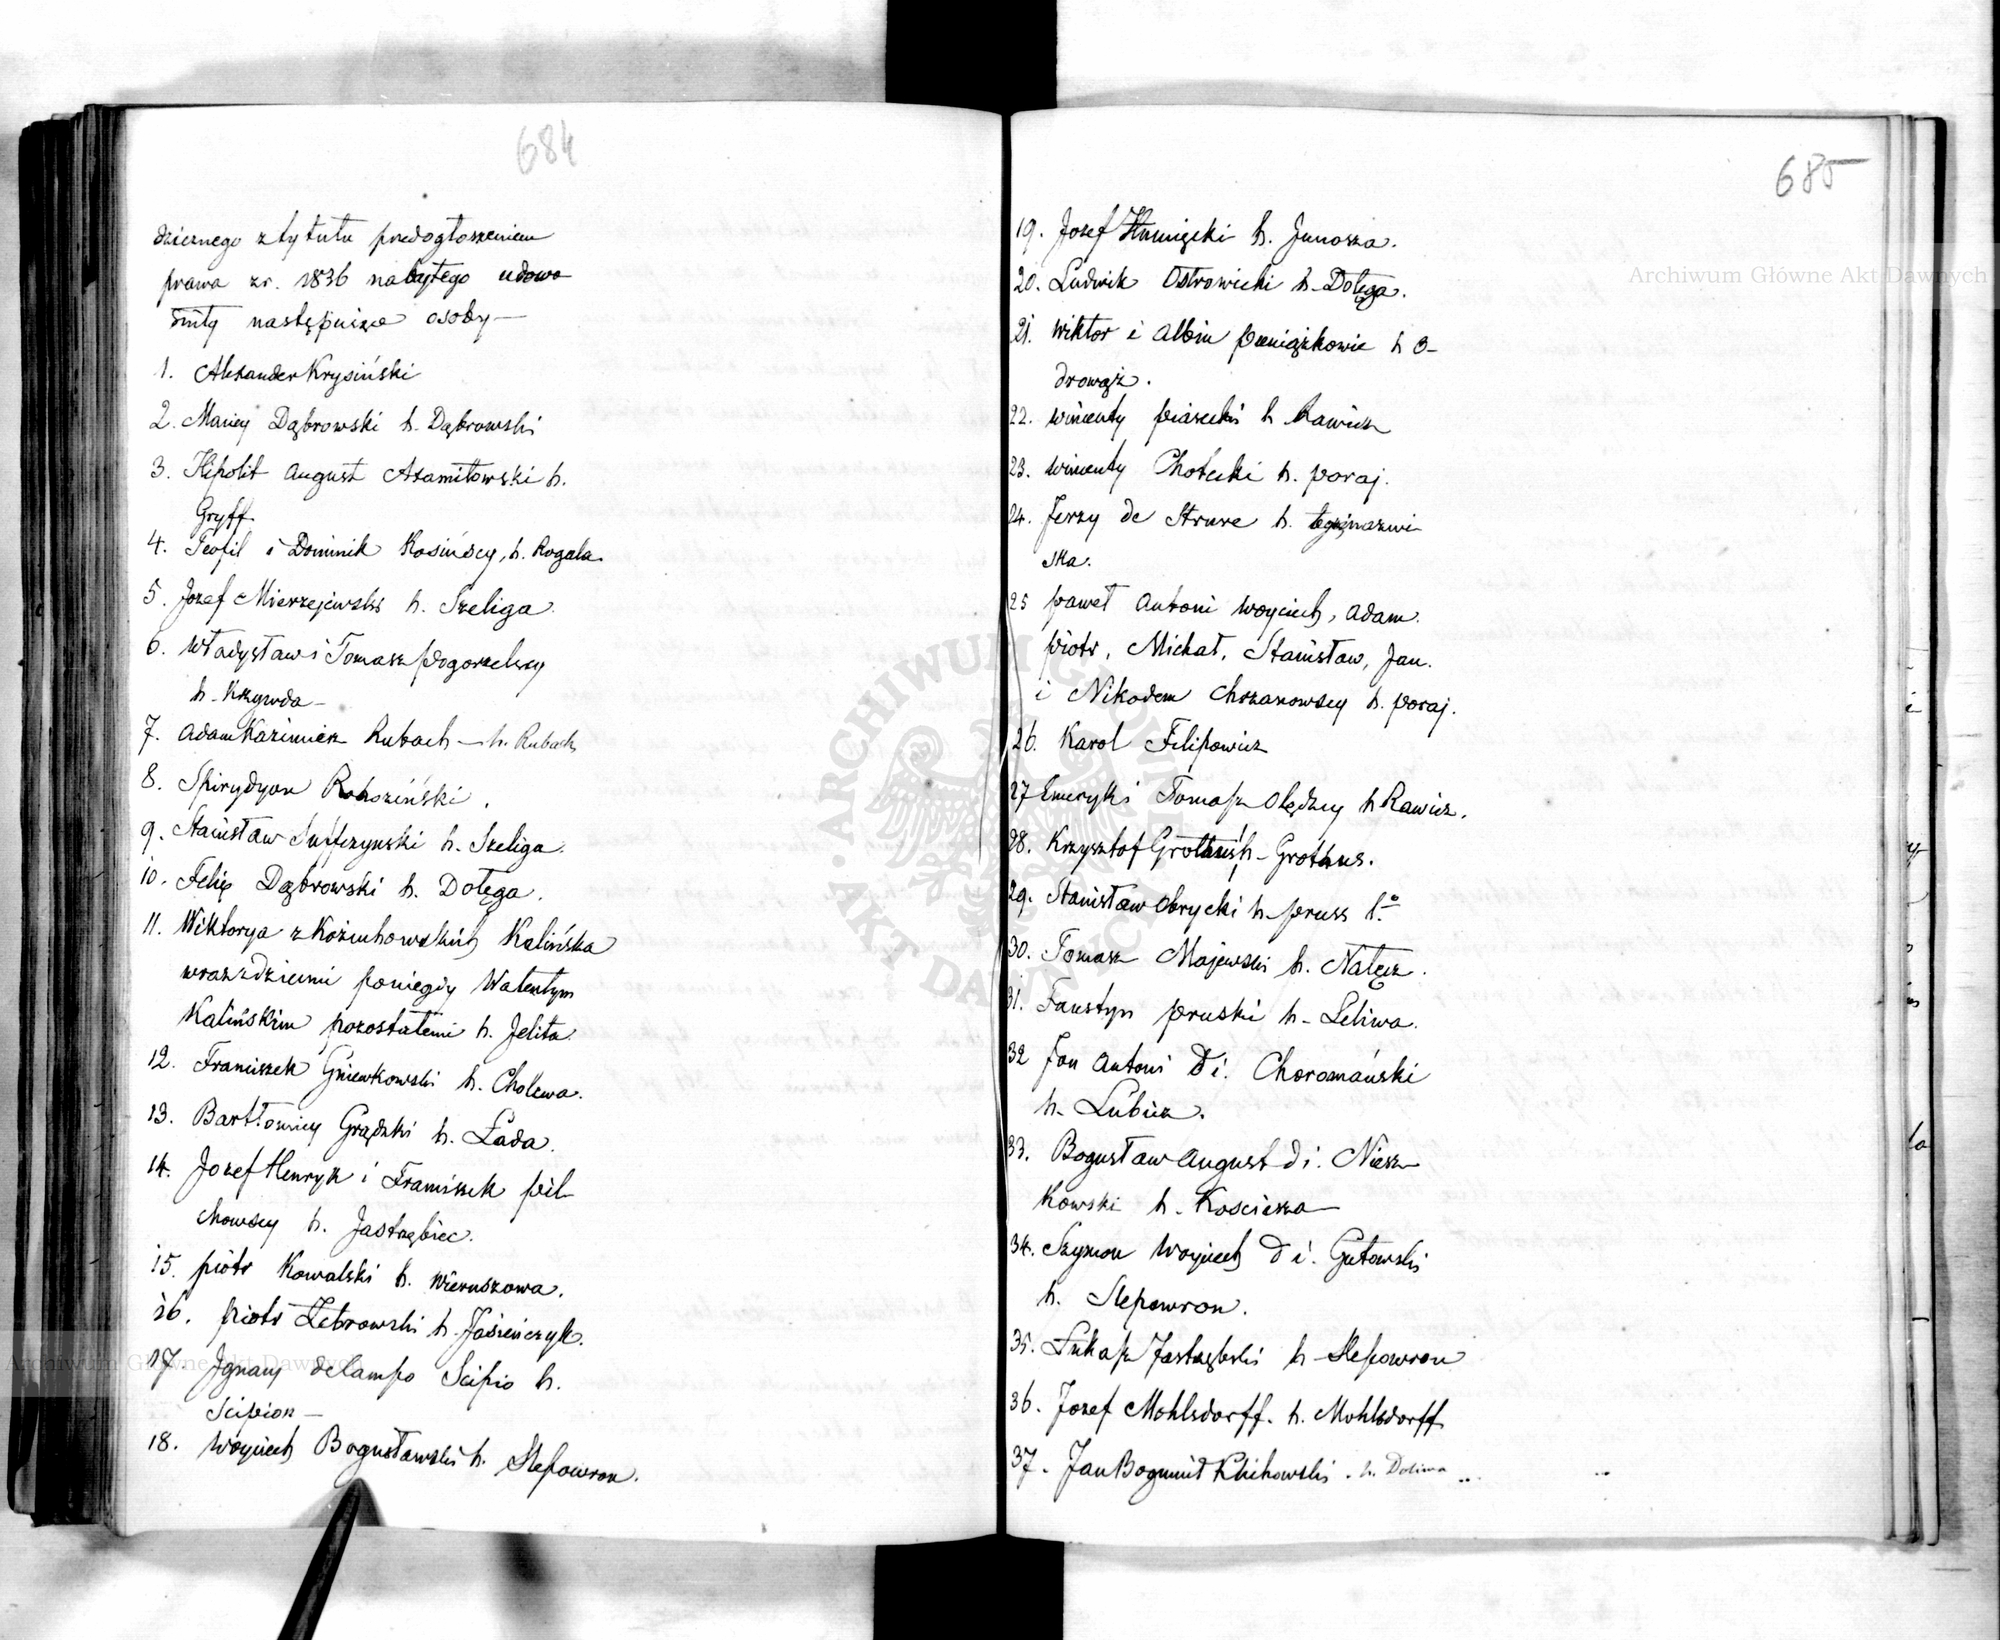 684
dzicznego z tytułu przedogłoszeniem
prawa z r. 1836 nabytego udowo
dniły następujące osoby—
1. Alexander Krysiński
2. Maciej Dąbrowski h. Dąbrowski
3. Hipolit August Azamitowski h.
Gryff
4. Teofil i Dominik Kosińscy, h. Rogala.
5. Jozef Mierzejewski h. Szeliga.
6. Władysław i Tomasz Pogorzelscy
h- Krzywda-
7. Adam Kazimierz Rubach - h. Rubach
8. Spirydyon Rohoziński.
9. Stanisław Suffczynski h. Szeliga.
10. Felix Dąbrowski h. Dołęga.
11. Wiktorya z Kożuchowskich Kalińska
wraz z dziećmi po niegdy Walentym
Kalińskim pozostałemi h. Jelita.
12. Franciszek Gniewkowski h. Cholewa.
13. Bartłomiey Grądzki h. Łada.
14. Jozef Henryk i Franciszek Pil
chowscy h. Jastrzębiec.
15. Piotr Kowalski h. Wieruszowa.
16. Piotr Żebrowski h. Jasieńczyk.
17. Ignacy de Campo Scipio h.
Scipion—
18. Woyciech Bogusławski h. Slepowron.
685
19. Jozef h. Junosza.
20. Ludwik Ostrowicki h- Dołęga.
21. Wiktor i Albin Pieniążkowie h O-
drowąż.
22. Wincenty Piasecki h Rawicz
23. Wincenty Chołecki h. Poraj.
24. Jerzy de Struve h. tegoż nazwi
ska.
25 Paweł Antoni Woyciech, Adam.
Piotr, Michał, Stanisław, Jan.
i Nikodem Chrzanowscy h. Poraj.
26. Karol Filipowicz
27 Emeryk i Tomasz Olędzcy h Rawicz.
28. Krzysztof Grothus h- Grothus.
29. Stanisław Obrycki h- Pruss 1.º
30. Tomasz Majewski h. Nałęcz.
31. Faustyn Pruski h- Leliwa.
32 Jan Antoni D i. Choromański
h- Lubicz.
33. Bogusław August D i. Niesz-
kowski h- Kościesza—
34. Szymon Woyciech D i. Gutowski
h. Slepowron.
35. Łukasz Jastrzębski h- Slepowron
36. Jozef Mohlsdorff. h. Mohlsdorff
37. Jan Bogumił Klichowski. h. Doliwa
Archiwum Główne Akt Dawnych
Archiwum Główne Akt Dawnych
ARCHIWUM GŁÓWNE AKT DAWNYCH